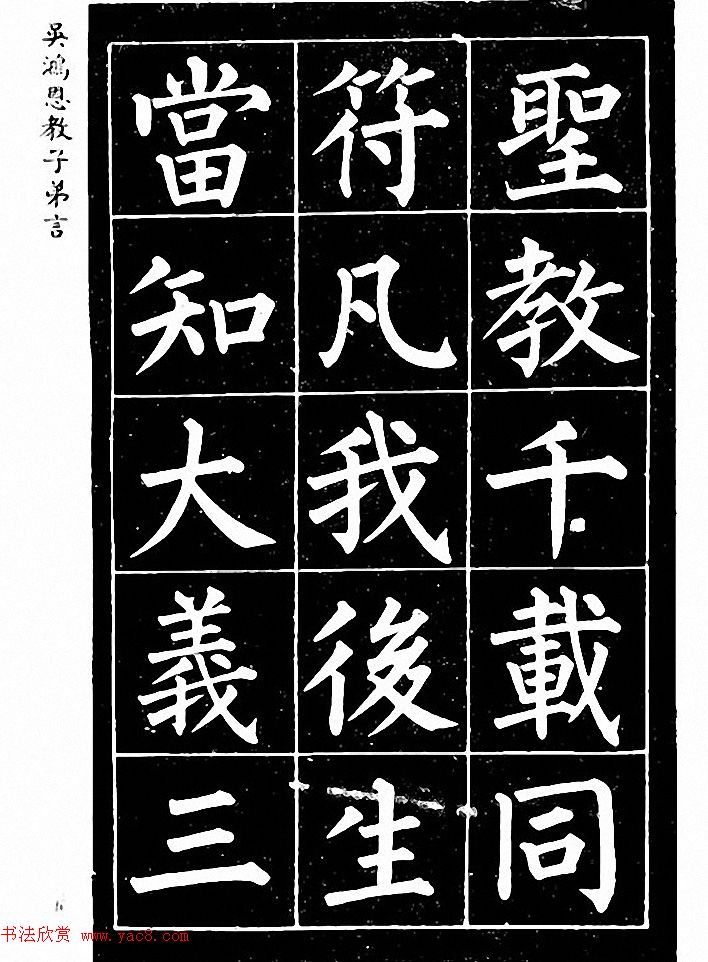 聖教千載同
符凡我後生
當知大義三
吳鴻恩教子弟言
书法欣赏 www.yac8.com